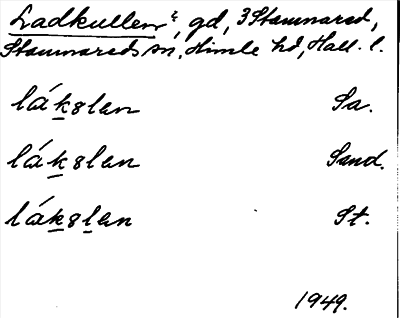 Ladkullen, gd, 3 Stamnared,
Stamnareds sn, Himle hd, Hall. l.
lákslen Sa.
lákslen Sand.
lákslen St.
1949.